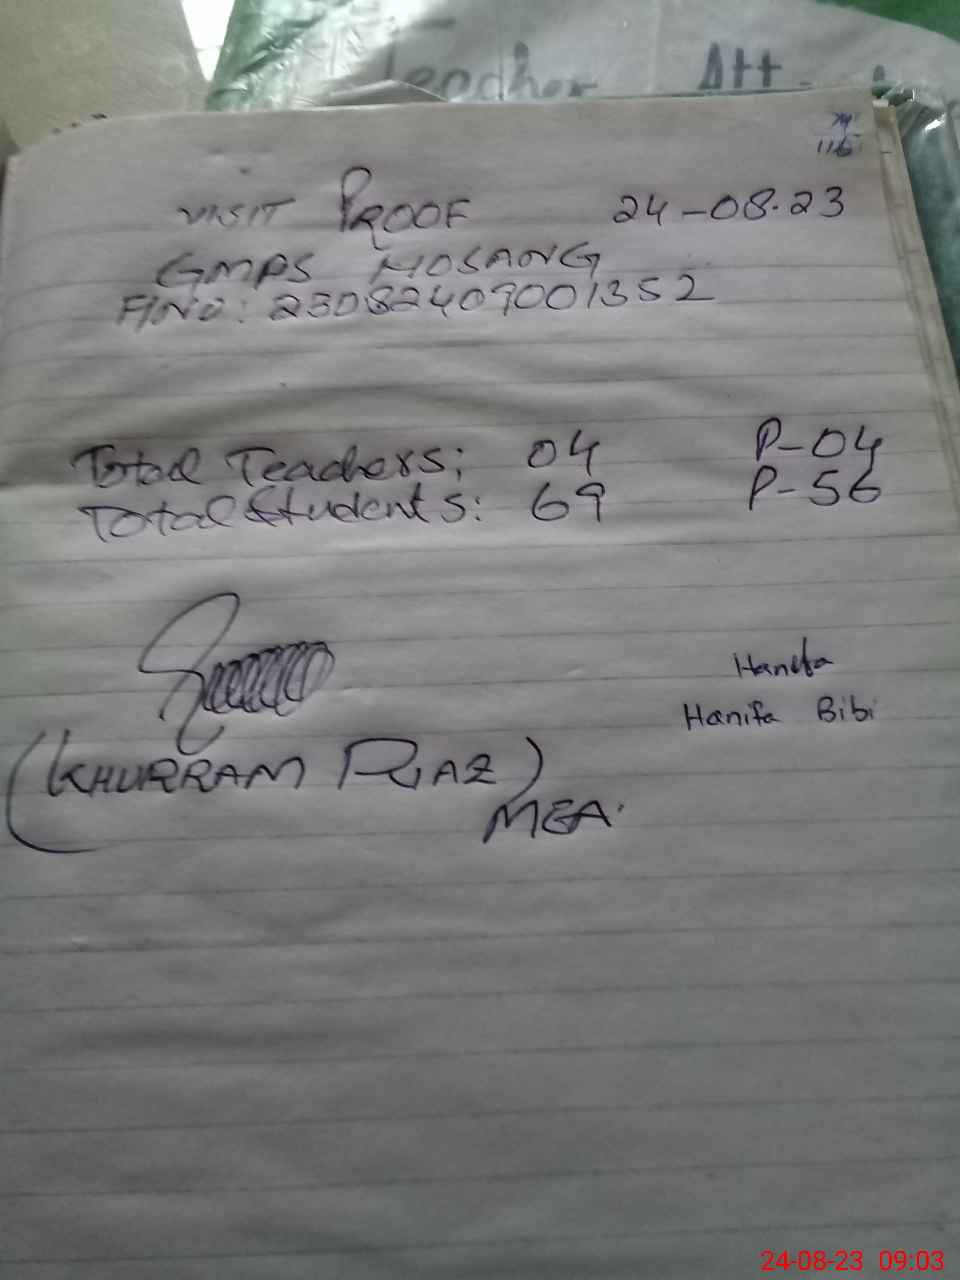 Teacher Att
116
VISIT PROOF 24-08-23
GMPS HOSANG
F/NO: 23082409001352
Total Teachers: 04 P-04
Total Students: 69 P-56
Hanifa
Hanifa Bibi
(KHURRAM RIAZ)
MEA.
24-08-23 09:03